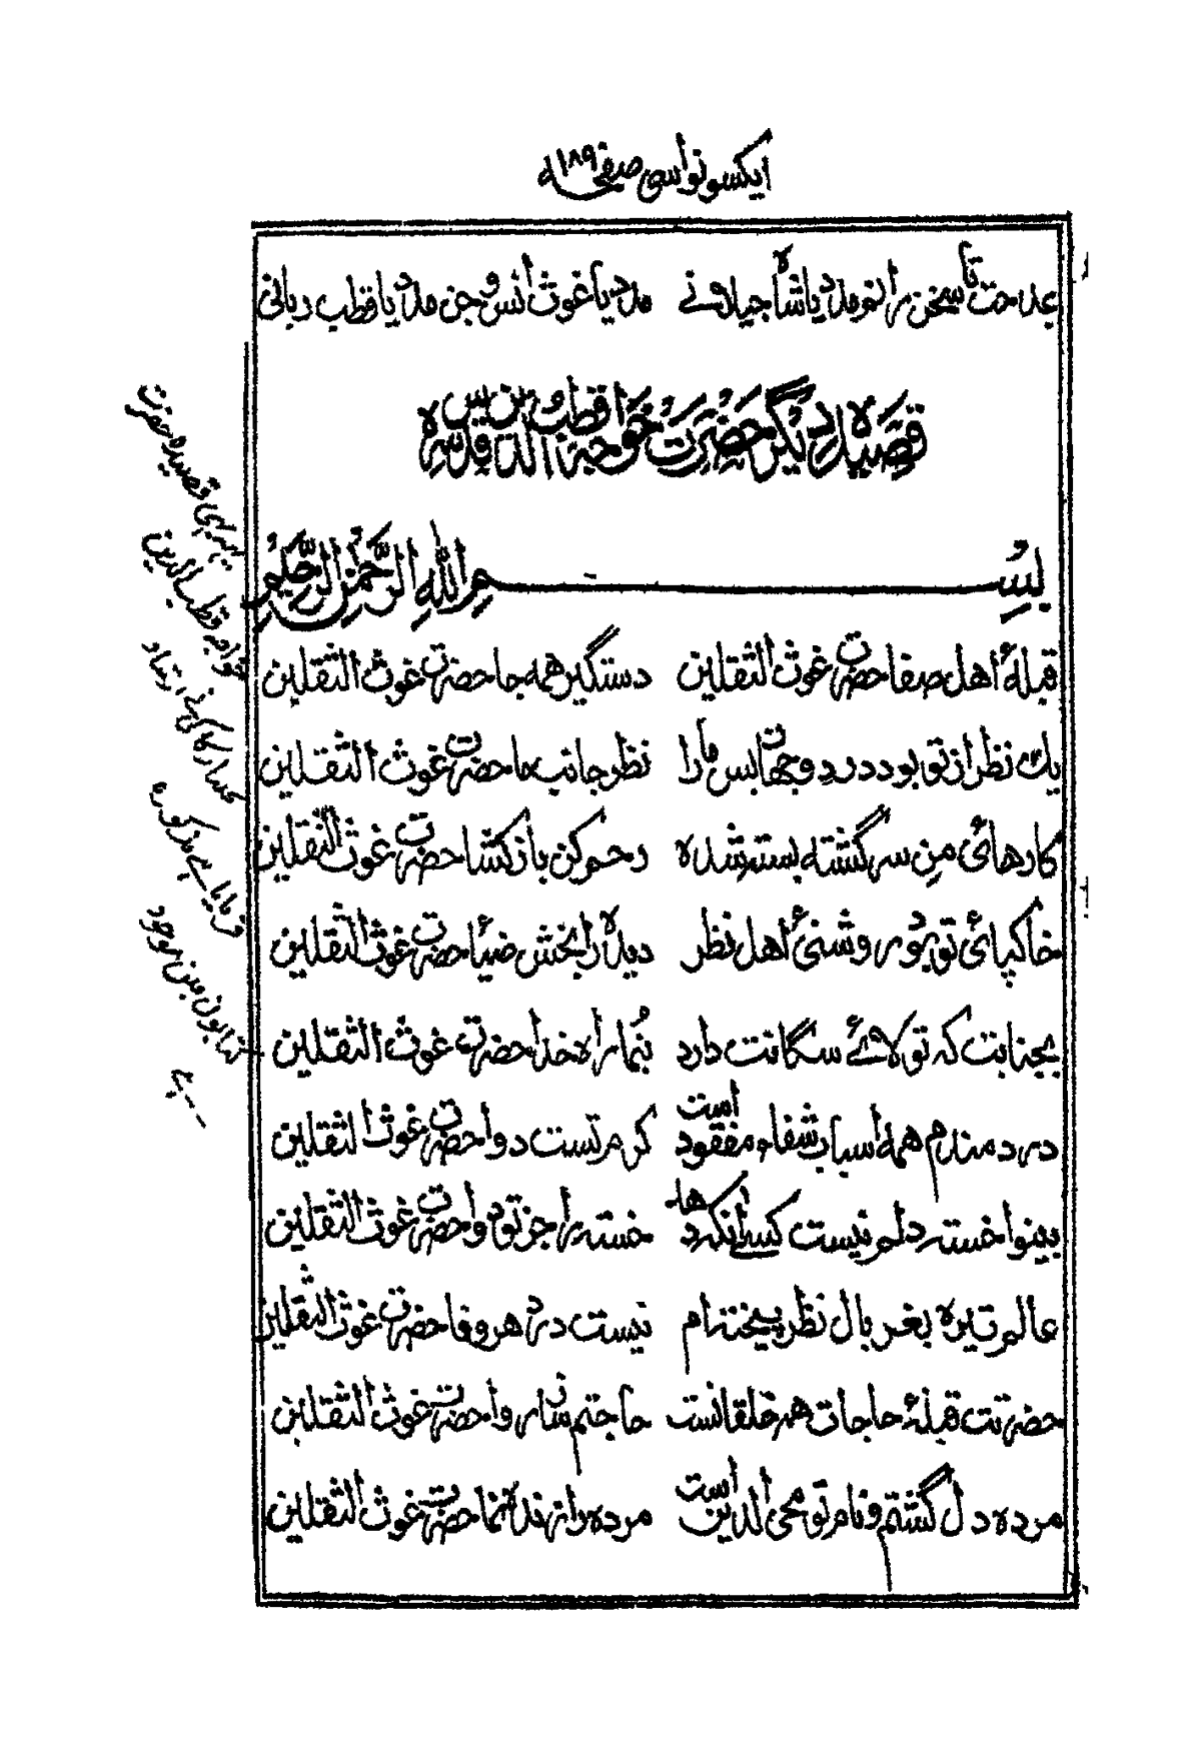 ایکسو نواسی صفحہ ۱۸۹
مدحت تا سخن رانو مدد یا شاه جیلانے مدد یا غوث انس و جن مدد یا قطب ربانی
قصیده دیگر حضرت خواجه قطب الدین قدس سره
بسم الله الرحمن الرحیم
قبلهٔ اهل صفا حضرت غوث الثقلین دستگیر همه جا حضرت غوث الثقلین
یك نظر از تو بود در دو جهان بس ما را نظر جانب ما حضرت غوث الثقلین
کارهائی من سر گشته بسته شده رحم کن باز کشا حضرت غوث الثقلین
خاکپائی تو بود روشنئ اهل نظر دیده را بخش ضیا حضرت غوث الثقلین
بجنابت که تولائے سگانت دارد بنما راه خدا حضرت غوث الثقلین
دردمندم همه اسباب شفا مفقود است کرم تست دوا حضرت غوث الثقلین
بینوا خسته دلم نیست کسے آنکه دهد خسته را جز تو دوا حضرت غوث الثقلین
عالم تیره بغربال نظر بیخته ام نیست در هر وفا حضرت غوث الثقلین
حضرتت قبلهٔ حاجات همه خلقانست حاجتم ساز روا حضرت غوث الثقلین
مرده دل گشتم و نام تو محی الدین است مرده را زنده نما حضرت غوث الثقلین
یہی قصیدہ حضرت
خواجہ قطب الدین
فرمایا ہے مذکورہ
کتابون مین موجود
ہے